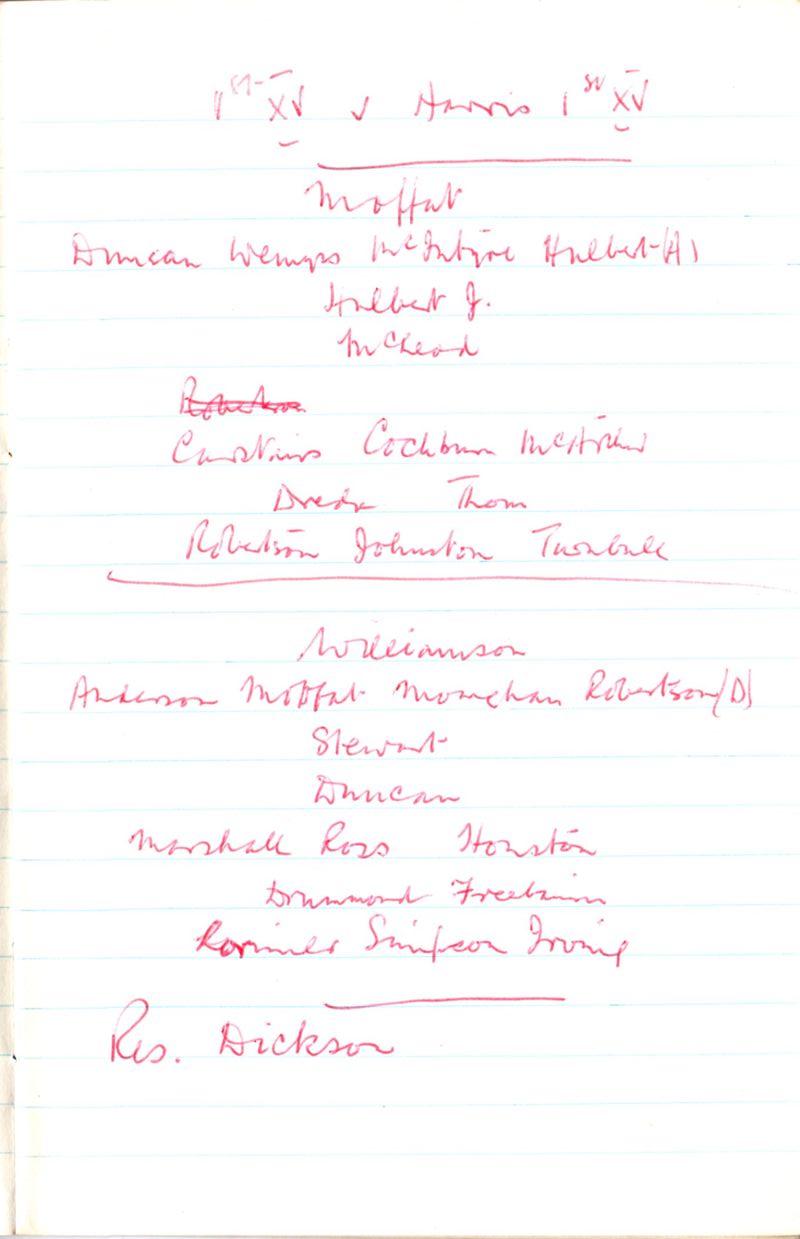 1st XV v Harris 1st XV
Moffat
Duncan Wemyss McIntyre Hulbert (A)
Hulbert J.
McLeod
Robertson
Carstairs Cochburn
Thom
Robertson Johnston Turnbull
Williamson
Anderson Moffat Monaghan Robertson (D)
Stewart
Duncan
Marshall Ross Houston
Drummond Freebairn
Lorimer Simpson Irving
Res. Dickson